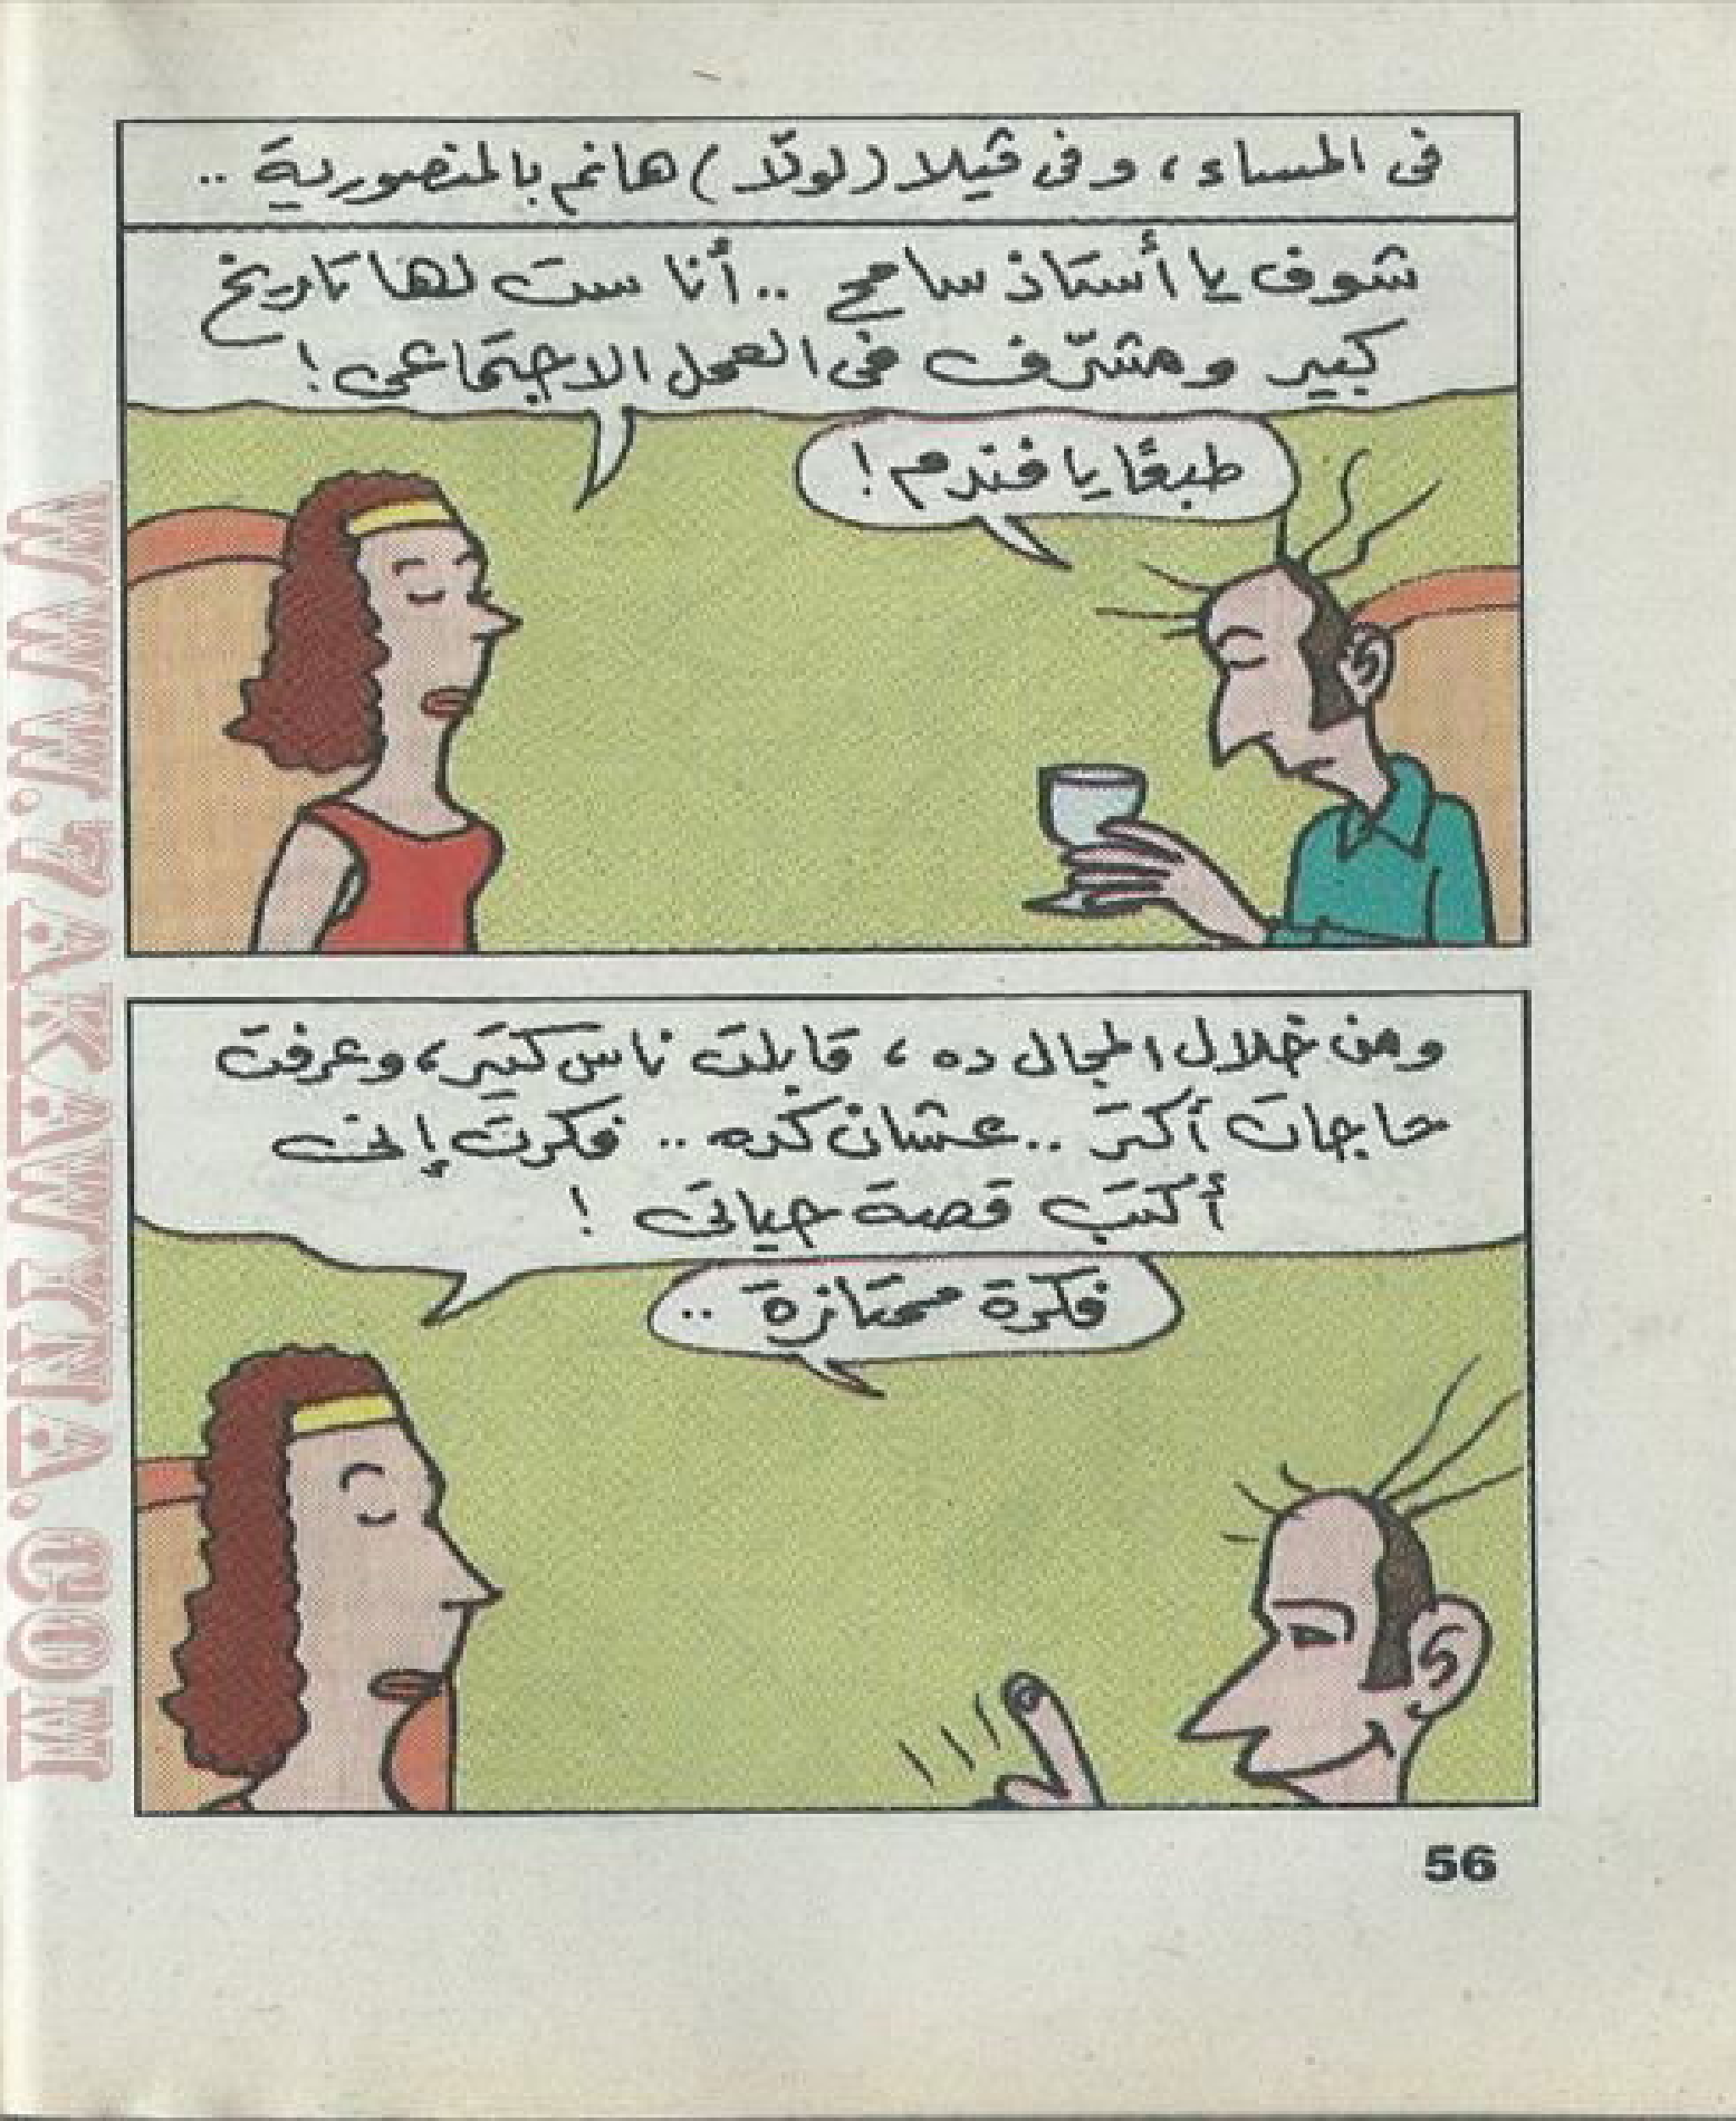 فى المساء، وفى ڤيلا (لولّا) هانم بالمنصورية ..
شوف يا أستاذ سامح .. أنا ست لها تاريخ
كبير ومشرّف فى العمل الاجتماعى!
طبعًا يا فندم!
ومن خلال المجال ده، قابلت ناس كتير، وعرفت
حاجات أكتر .. عشان كده .. فكرت إنى
أكتب قصة حياتى !
فكرة ممتازة ..
56